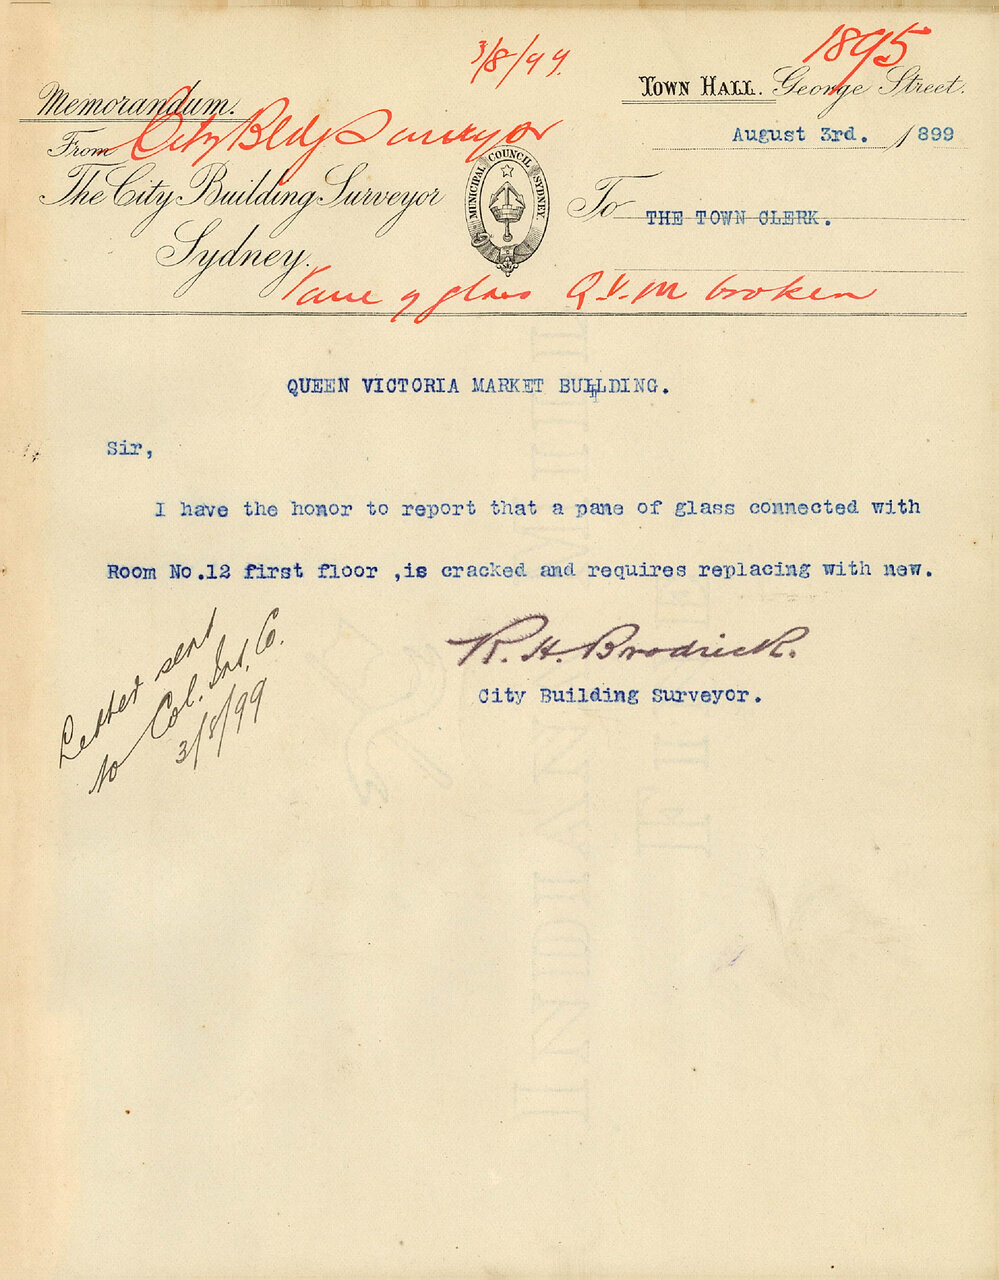 3/8/99.
1895
Memorandum.
TOWN HALL. George Street.
From City Bldg Surveyor
August 3rd. 1899
The City Building Surveyor
MUNICIPAL COUNCIL SYDNEY.
To THE TOWN CLERK.
Sydney.
Pane of glass Q.V.M broken
QUEEN VICTORIA MARKET BUILDING.
Sir,
I have the honor to report that a pane of glass connected with
Room No.12 first floor ,is cracked and requires replacing with new.
R. H. Brodrick.
City Building Surveyor.
Letter sent
to Col. Ins. Co.
3/8/99